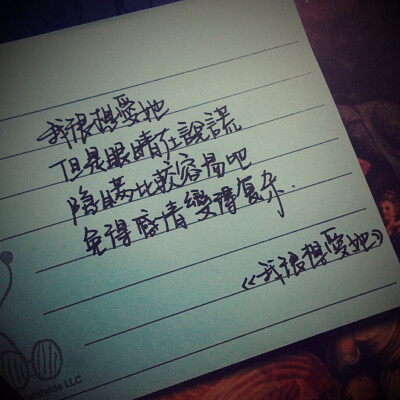 我很想愛她
但是眼睛在說謊
隐瞞比較容易吧
免得感情變得复杂.
《我很想愛她》
LLC